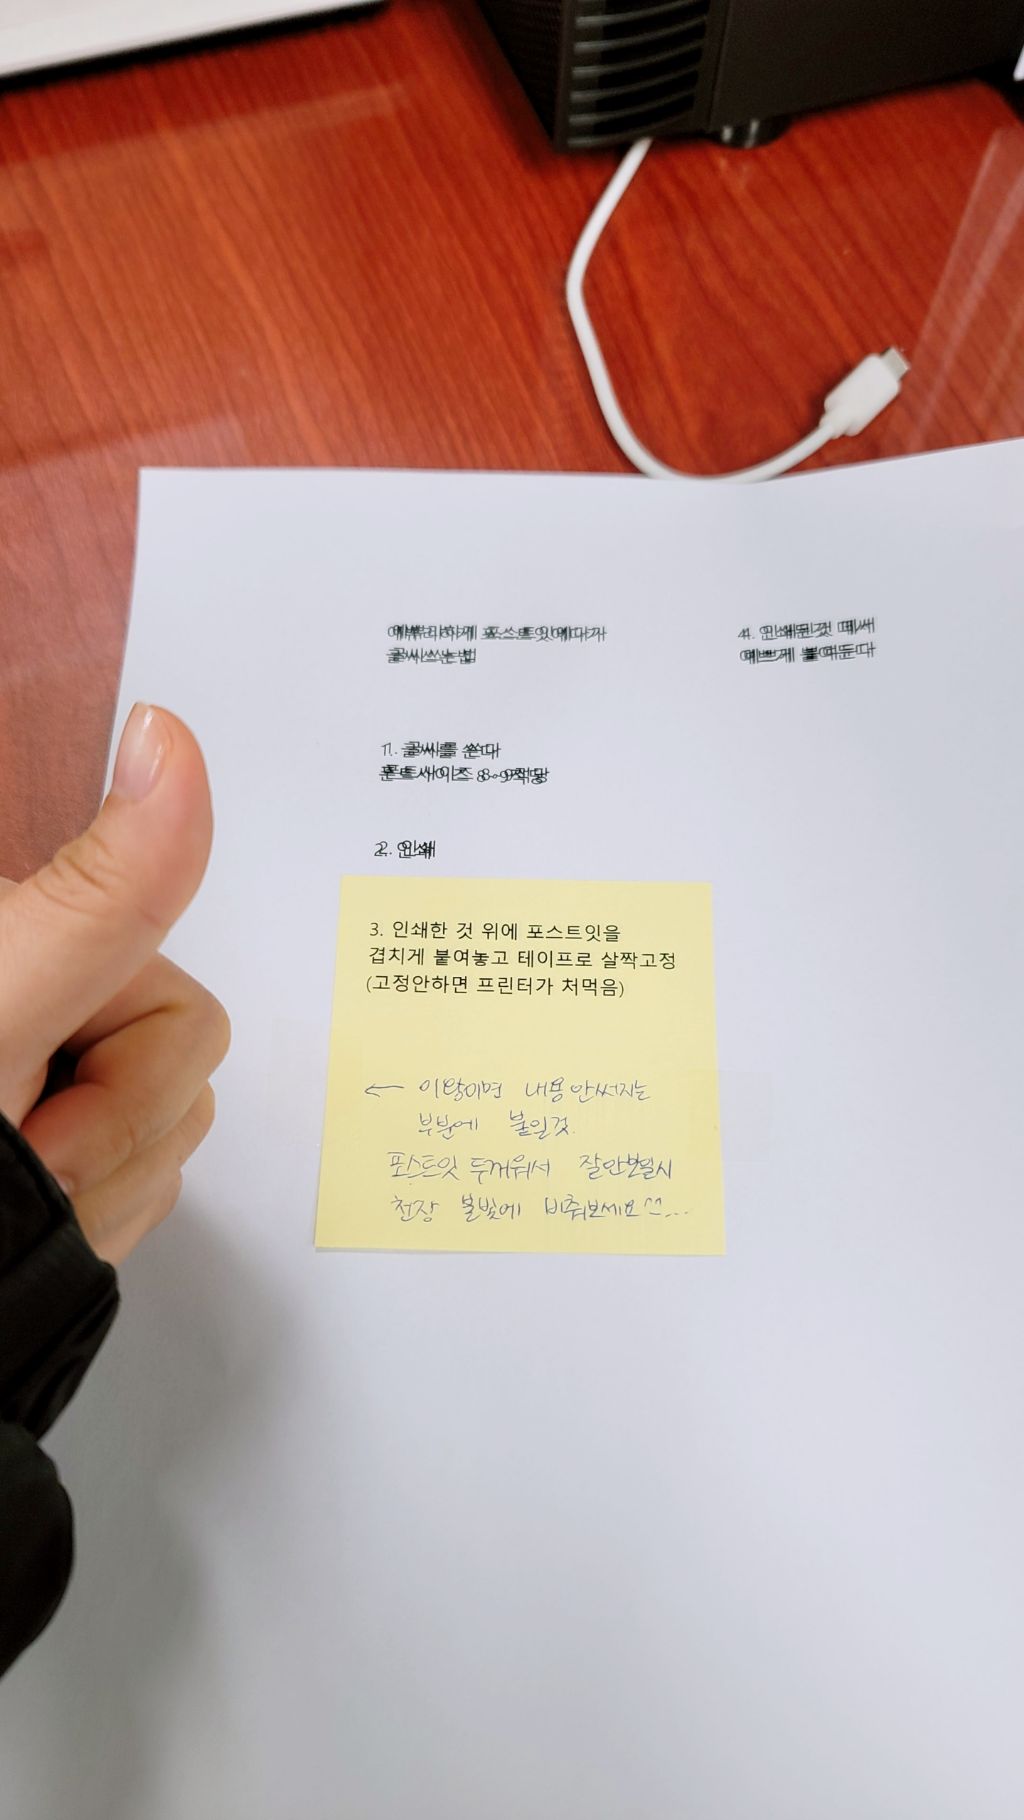 포스트잇에다가
글씨쓰는법
1. 글씨를 쓴다
폰트사이즈 8~9적당
2. 인쇄
3. 인쇄한 것 위에 포스트잇을
겹치게 붙여놓고 테이프로 살짝고정
(고정안하면 프린터가 처먹음)
← 이왕이면 내용 안써지는
부분에 붙일것.
포스트잇 두꺼워서 잘안보일시
천장 불빛에 비춰보세요 ^^...
4. 인쇄된것 떼서
예쁘게 붙여둔다